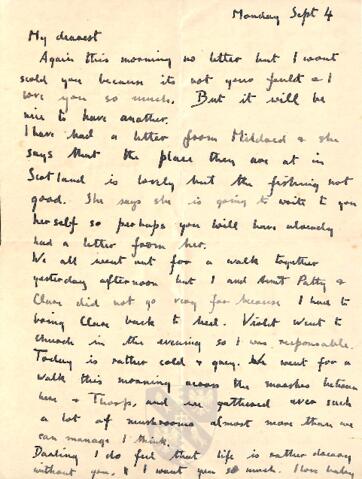 Monday Sept 4
My dearest
Again this morning no letter but I wont
scold you because its not your fault & I
love you so much. But it will be
nice to have another.
I have had a letter from Mildred & she
says that the place they are at in
Scotland is lovely but the fishing not
good. She says she is going to write to you
herself so perhaps you will have already
had a letter from her.
We all went out for a walk together
yesterday afternoon but I and Aunt Patty &
Clare did not go very far because I had to
bring Clare back to bed. Violet went to
church in the evening so I was responsible.
Today is rather cold & grey. We went for a
walk this morning across the marshes between
here & Thorp, and we gathered ever such
a lot of mushrooms almost more than we
can manage I think.
Darling I do feel that life is rather dreary
without you, & I want you so much. I love baby